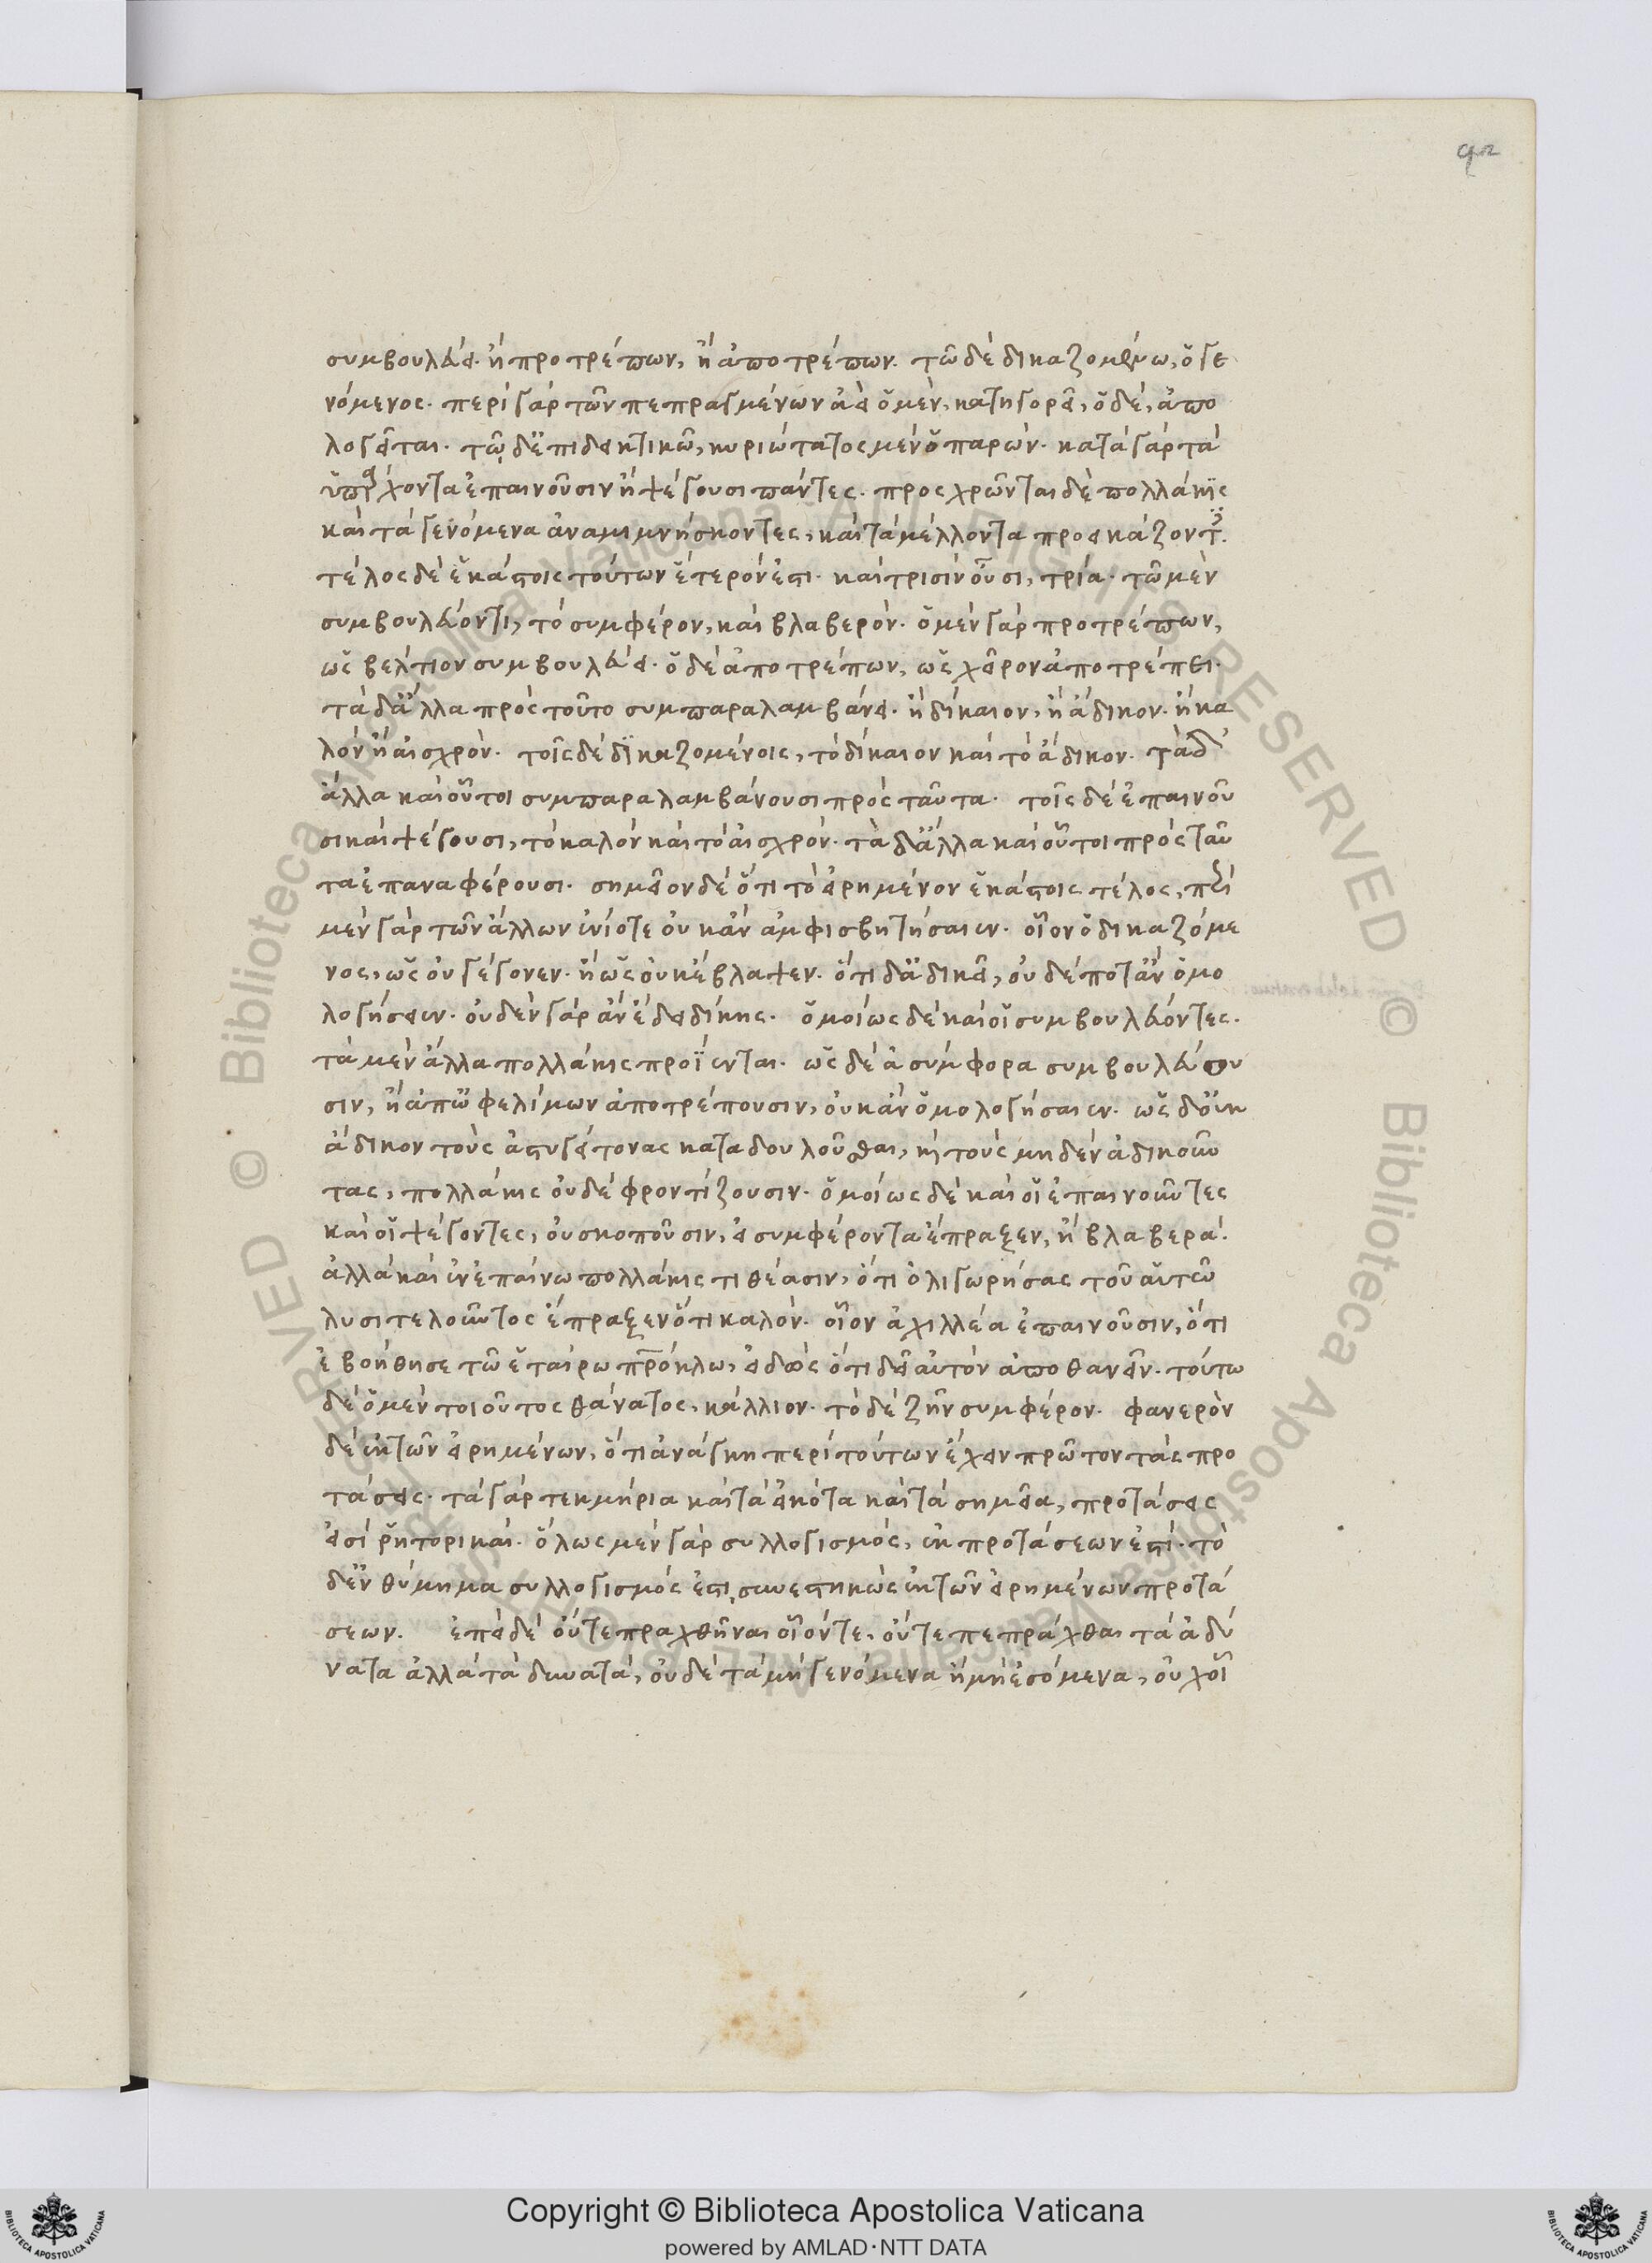 92
συμβουλεύει· ἢ προτρέπων, ἢ ἀποτρέπων. τῶ δὲ δικαζομένω, ὁ γε
νόμενος· περὶ γὰρ τῶν πεπραγμένων ἀεὶ ὁ μὲν, κατηγορεῖ, ὁ δὲ, ἀπο
λογεῖται. τῶ δ' ἐπιδεικτικῶ, κυριώτατος μὲν ὁ παρών· κατὰ γὰρ τὰ
ὑπάρχοντα ἐπαινοῦσιν ἢ ψέγουσι πάντες. προσχρῶνται δὲ πολλάκις
καὶ τὰ γενόμενα ἀναμιμνήσκοντες, καὶ τὰ μέλλοντα προεικάζοντες.
τέλος δὲ ἑκάστοις τούτων ἕτερόν ἐστι· καὶ τρισὶν οὖσι, τρία· τῶ μὲν
συμβουλεύοντι, τὸ συμφέρον, καὶ βλαβερὸν. ὁ μὲν γὰρ προτρέπων,
ὡς βέλτιον συμβουλεύει· ὁ δὲ ἀποτρέπων, ὡς χεῖρον ἀποτρέπει.
τὰ δ' ἄλλα πρὸς τοῦτο συμπαραλαμβάνει· ἢ δίκαιον, ἢ ἄδικον· ἢ κα
λὸν ἢ αἰσχρὸν. τοῖς δὲ δικαζομένοις, τὸ δίκαιον καὶ τὸ ἄδικον. τὰ δ'
ἄλλα καὶ οὗτοι συμπαραλαμβάνουσι πρὸς ταῦτα. τοῖς δὲ ἐπαινοῦ
σι καὶ ψέγουσι, τὸ καλὸν καὶ τὸ αἰσχρὸν. τὰ δ' ἄλλα καὶ οὗτοι πρὸς ταῦ
τα ἐπαναφέρουσι. σημεῖον δὲ ὅτι τὸ εἰρημένον ἑκάστοις τέλος, περὶ
μὲν γὰρ τῶν ἄλλων ἐνίοτε οὐκ ἂν ἀμφισβητήσαιεν. οἷον ὁ δικαζόμε
νος, ὡς οὐ γέγονεν· ἢ ὡς οὐκ ἔβλαψεν. ὅτι δ' ἀδικεῖ, οὐδέποτ' ἂν ὁμο
λογήσειεν· οὐδὲν γὰρ ἂν ἔδει δίκης. ὁμοίως δὲ καὶ οἱ συμβουλεύοντες.
τὰ μὲν ἄλλα πολλάκις προΐενται. ὡς δὲ ἀσύμφορα συμβουλεύου
σιν, ἢ ἀπ' ὠφελίμων ἀποτρέπουσιν, οὐκ ἂν ὁμολογήσαιεν. ὡς δ' οὐκ
ἄδικον τοὺς ἀστυγείτονας καταδουλοῦσθαι, καὶ τοὺς μηδὲν ἀδικοῦν
τας, πολλάκις οὐδὲ φροντίζουσιν. ὁμοίως δὲ καὶ οἱ ἐπαινοῦντες
καὶ οἱ ψέγοντες, οὐ σκοποῦσιν, εἰ συμφέροντα ἔπραξεν, ἢ βλαβερά.
ἀλλὰ καὶ ἐν ἐπαίνω πολλάκις τιθέασιν, ὅτι ὀλιγωρήσας τοῦ αὑτῶ
λυσιτελοῦντος ἔπραξεν ὅτι καλόν. οἷον ἀχιλλέα ἐπαινοῦσιν, ὅτι
ἐβοήθησε τῶ ἑταίρω πατρόκλω, εἰδὼς ὅτι δεῖ αὐτὸν ἀποθανεῖν. τούτω
δὲ ὁ μὲν τοιοῦτος θάνατος, κάλλιον. τὸ δὲ ζῆν συμφέρον. φανερὸν
δὲ ἐκ τῶν εἰρημένων, ὅτι ἀνάγκη περὶ τούτων ἔχειν πρῶτον τὰς προ
τάσεις. τὰ γὰρ τεκμήρια καὶ τὰ εἰκότα καὶ τὰ σημεῖα, προτάσεις
εἰσὶ ῥητορικαί. ὅλως μὲν γὰρ συλλογισμός, ἐκ προτάσεων ἐστί. τὸ
δ' ἐνθύμημα συλλογισμός ἐστι συνεστηκὼς ἐκ τῶν εἰρημένων προτά
σεων. ἐπεὶ δὲ οὔτε πραχθῆναι οἷόν τε, οὔτε πεπράχθαι τὰ ἀδύ
νατα ἀλλὰ τὰ δυνατά, οὐδὲ τὰ μὴ γενόμενα ἢ μὴ ἐσόμενα, οὐχ οἷ
Copyright © Biblioteca Apostolica Vaticana
powered by AMLAD·NTT DATA